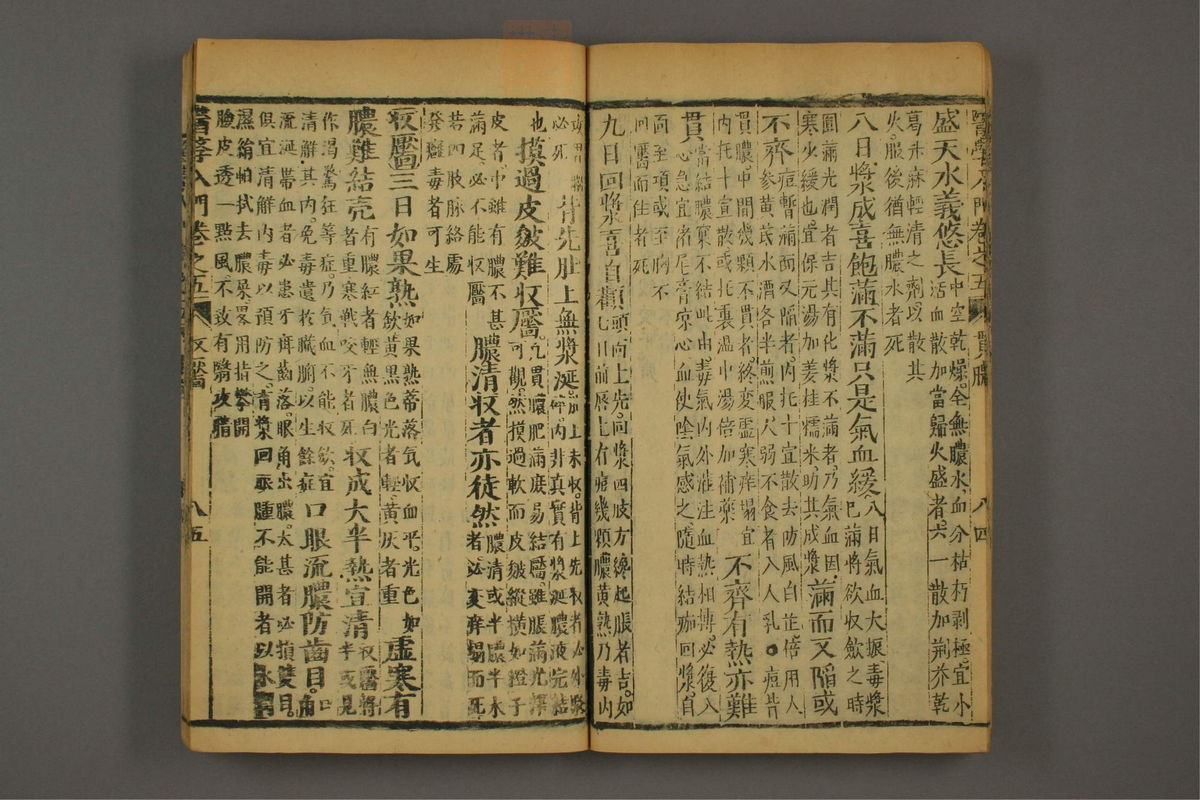 醫學入門卷之五 貫膿 八四
盛天水義悠長中空乾燥全無膿水血分枯朽剥極宜小
活血散加當歸火盛者六一散加荆芥乾
葛升麻輕清之劑以散其
火服後猶無膿水者死
八日漿成喜飽滿不滿只是氣血緩八日氣血大振毒漿
已滿將欲收斂之時
圓滿光潤者吉其有化漿不滿者乃氣血因
寒少緩也宜保元湯加姜桂糯米助其成漿滿而又陷或
不齊痘暫滿而又陷者内托十宣散去防風白芷倍用人
參黄芪水酒各半煎服尺弱不食者入人乳痘皆
貫膿中間幾顆不貫者終变虚寒痒塌宜
内托十宣散或托裏温中湯倍加補藥不齊有熱亦難
貫當結膿窠不結此由毒氣内外灌注血熱相摶必復入
心急宜猪尾膏涼心血使陰氣感之隨時結痂回漿自
面至項或至胸不
回靨而住者死
九日回漿喜自顴頭向上先向漿四肢方纔起脹者吉如
七日前唇上有痘幾顆膿黄熟乃毒内
必死背先肚上無漿涎
也摸過皮皴難收靨凡貫膿肥滿底易結靨雖脹滿光
可觀然摸過軟而皮皴縱横如橙子
皮者中雖有膿不甚
滿足必不能收靨膿清收者亦徒然膿清或半膿半水
者必变痒塌而死
若四肢脉絡處
發癰毒者可生
收靨三日如果熟如果熟蒂落氣收血平光色如
飲黄黑色光者輕黄灰者重虚寒有
膿難結壳有膿紅者輕無膿白
者重寒戰咬牙者死收成大半熱宣清收靨將
半或見
作渴驚狂等症乃氣血不能收斂宜
清解其内免毒遺於臟腑以生餘症口眼流膿防齒目口
流涎帶血者必患牙疳齒落眼角出膿太甚者必損雙目
俱宜清解内毒以預防之清漿回眼腫不能開者以水
濕絹帕拭去膿臭畧用指擘開
瞼皮透一點風不致有醫皮腊
醫學入門卷之五 收靨 八五